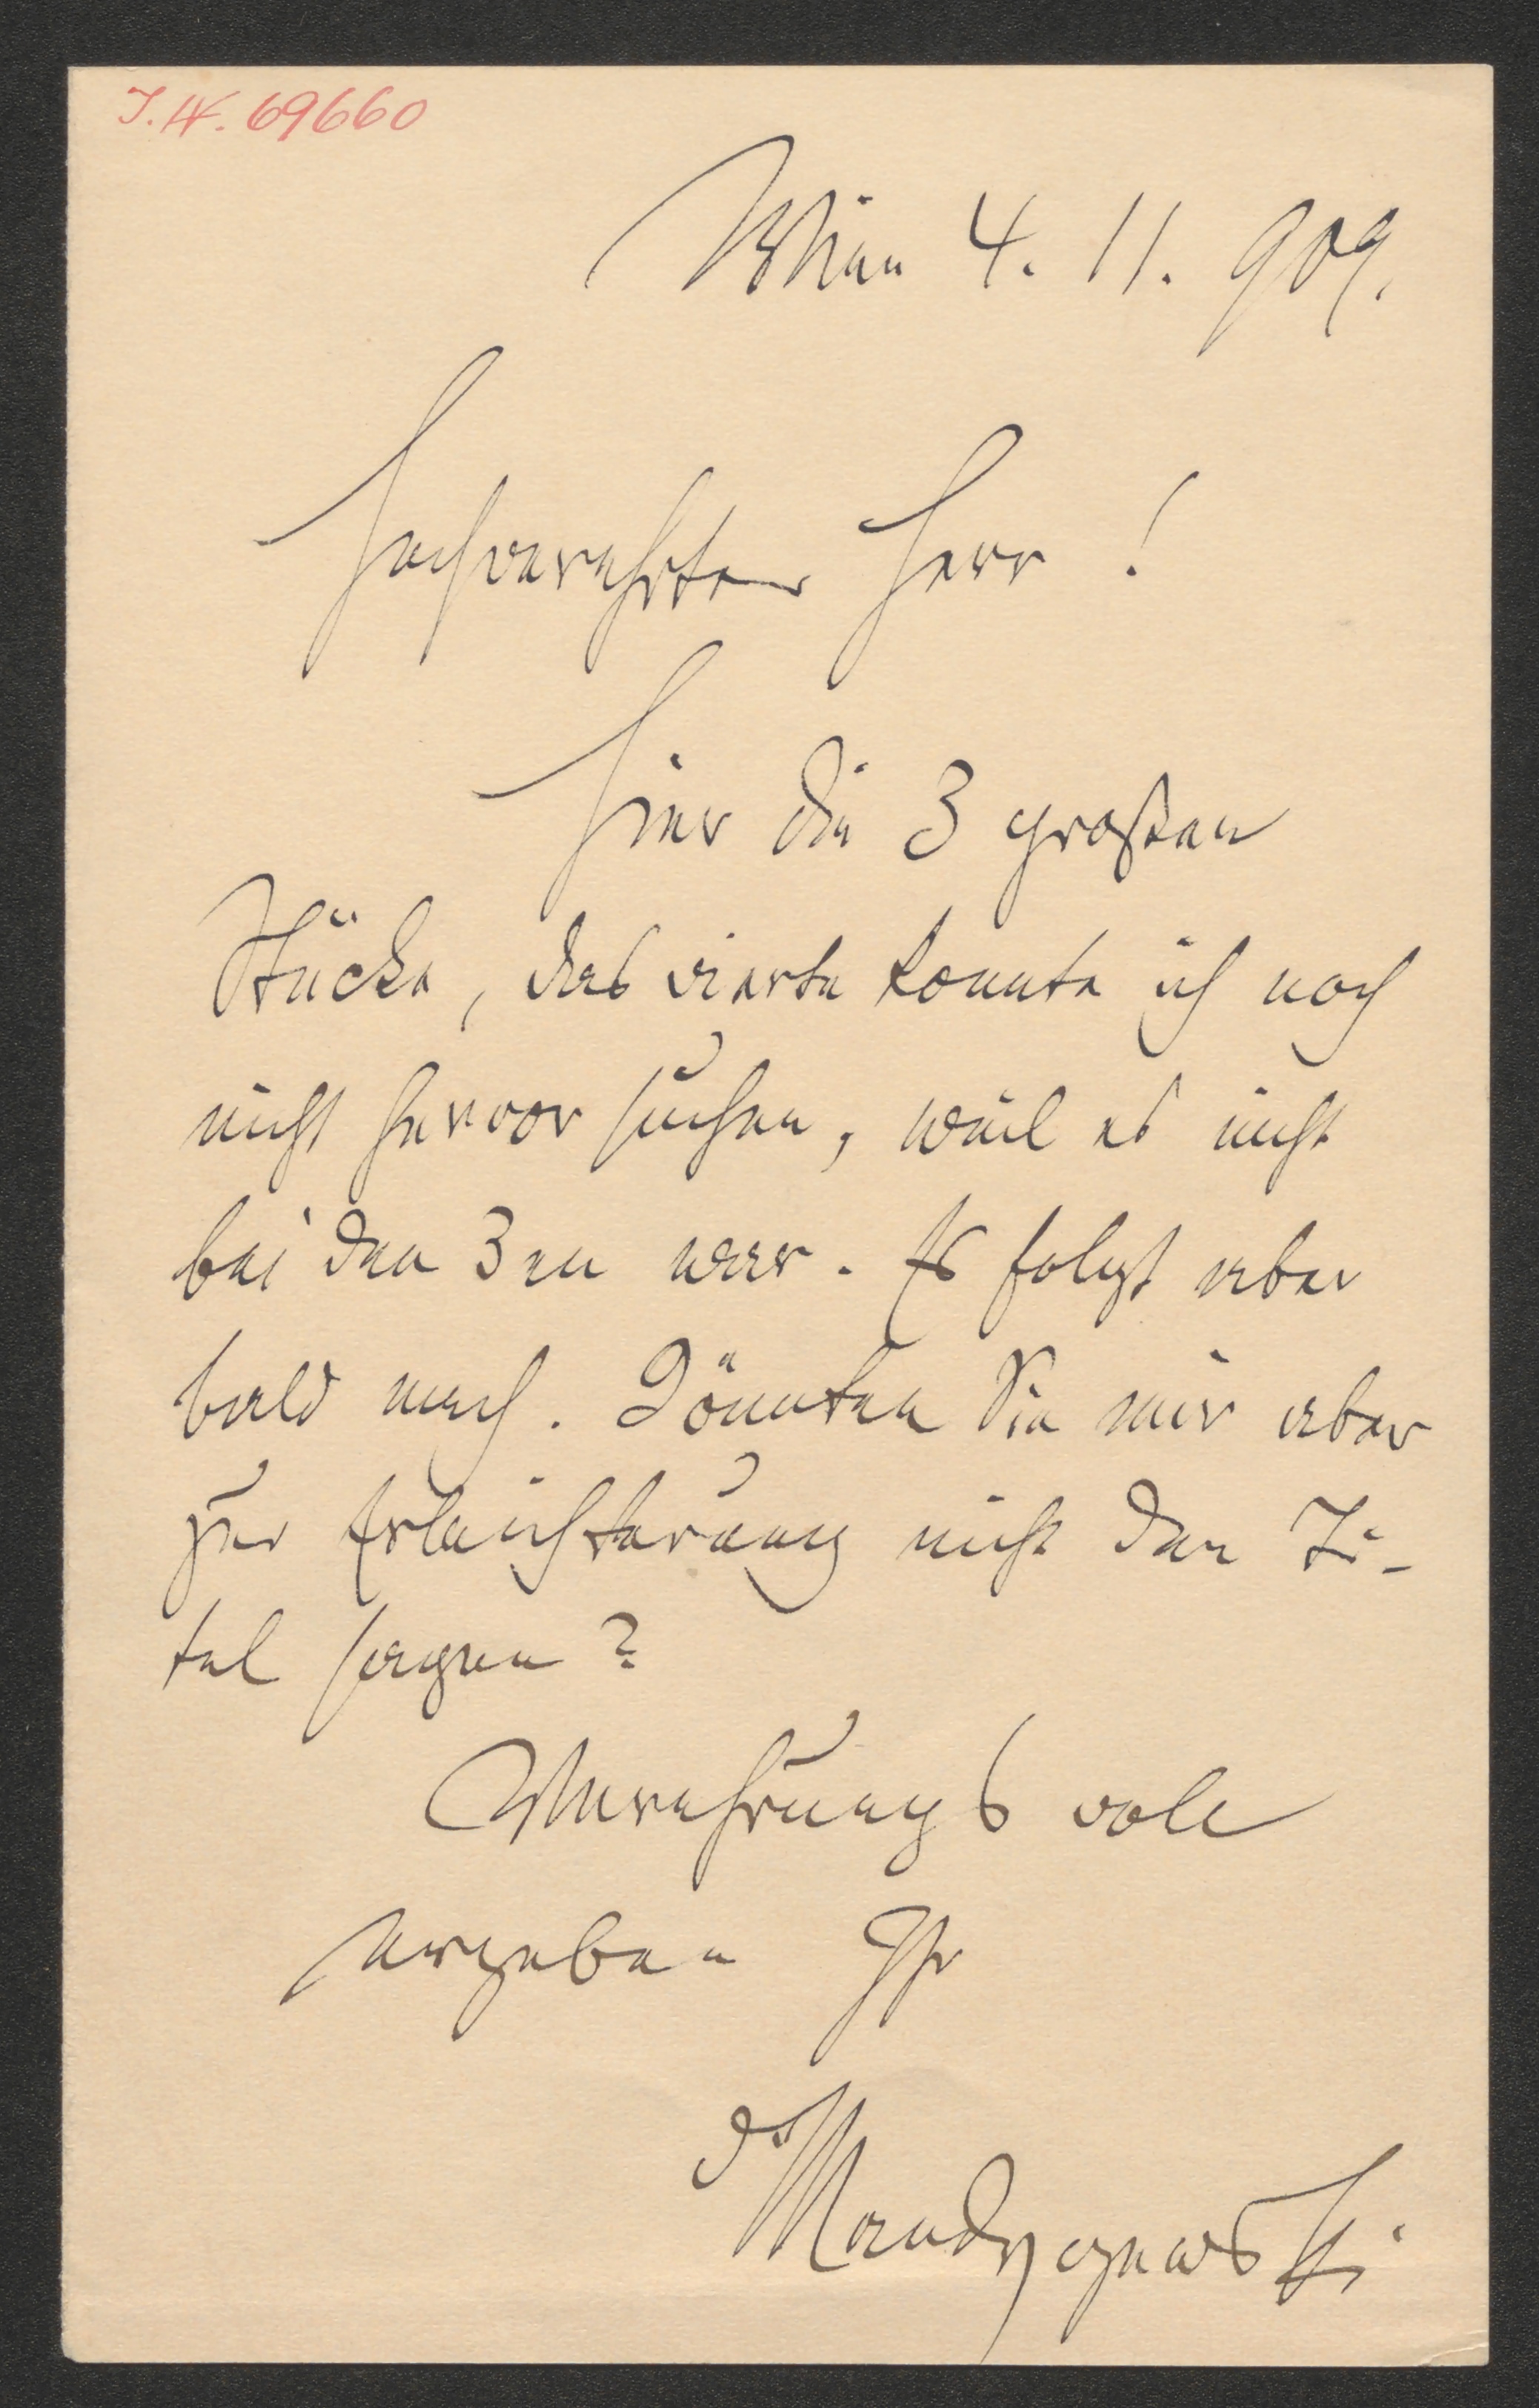 I.N. 69660
Wien 4. 11. 909.
Hochverehrter Herr!
Hier die 3 großen
Stücke, das vierte konnte ich noch
nicht hervor suchen, weil es nicht
bei den 3en war. Es folgt aber
bald nach. Könnten Sie mir aber
zur Erleichterung nicht den Ti-
tel sagen?
Verehrungsvoll
ergeben Ihr
Dr Mandyczewski